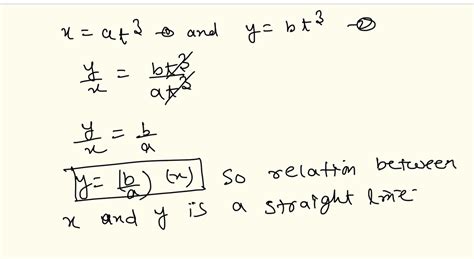 x = at³ —① and y = bt³ —②
y/x = bt³/at³
y/x = b/a
y = (b/a) (x) so relation between
x and y is a straight line